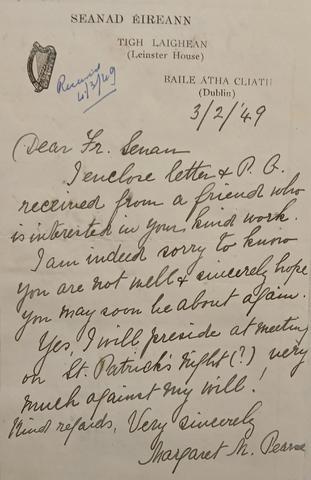 SEANAD ÉIREANN
TIGH LAIGHEAN
(Leinster House)
BAILE ÁTHA CLIATH
(Dublin)
Received
4/2/49
3/2/'49
Dear Fr. Senan
I enclose letter & P.O.
received from a friend who
is interested in your kind work.
I am indeed sorry to know
you are not well & sincerely hope
you may soon be about again.
Yes, I will preside at meeting
on St. Patrick's Night (?) very
much against my will!
Kind regards, Very sincerely
Margaret M. Pearse